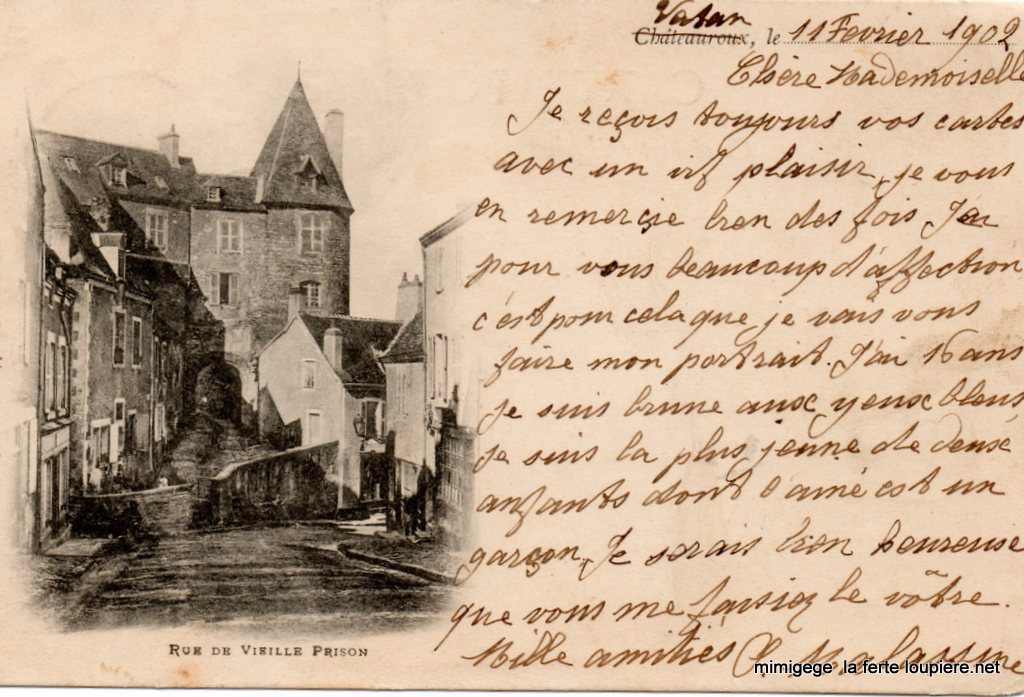 Vatan
Châteauroux, le 11 Fevrier 1902
Chère Mademoiselle
Je reçois toujours vos cartes
avec un vif plaisir, je vous
en remerçie bien des fois. J'ai
pour vous beaucoup d'affection
c'est pour cela que je vais vous
faire mon portrait. J'ai 16 ans
je suis brune aux yeux bleus,
je suis la plus jeune de deux
enfants dont l'ainé est un
garçon, Je serais bien heureuse
que vous me faisiez le vôtre.
Mille amitiés
RUE DE VIEILLE PRISON
mimigege la ferte loupiere.net